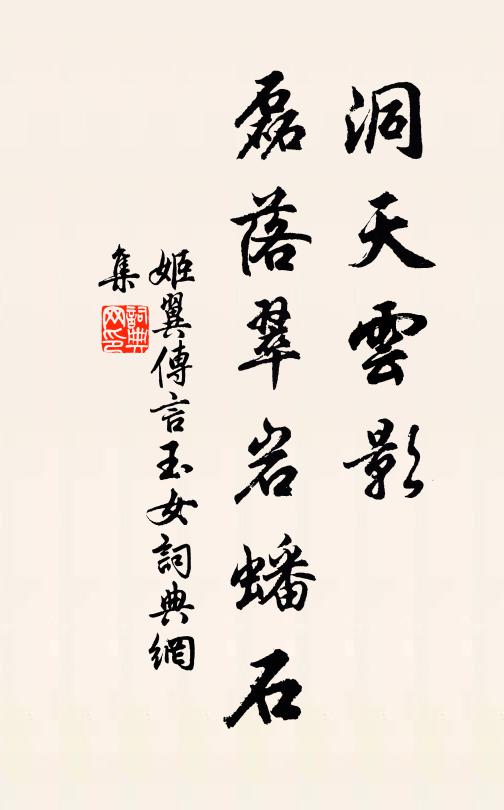 洞天雲影
磊落翠岩蟠石
姬翼傳言玉女詞典網
集
詞典网印